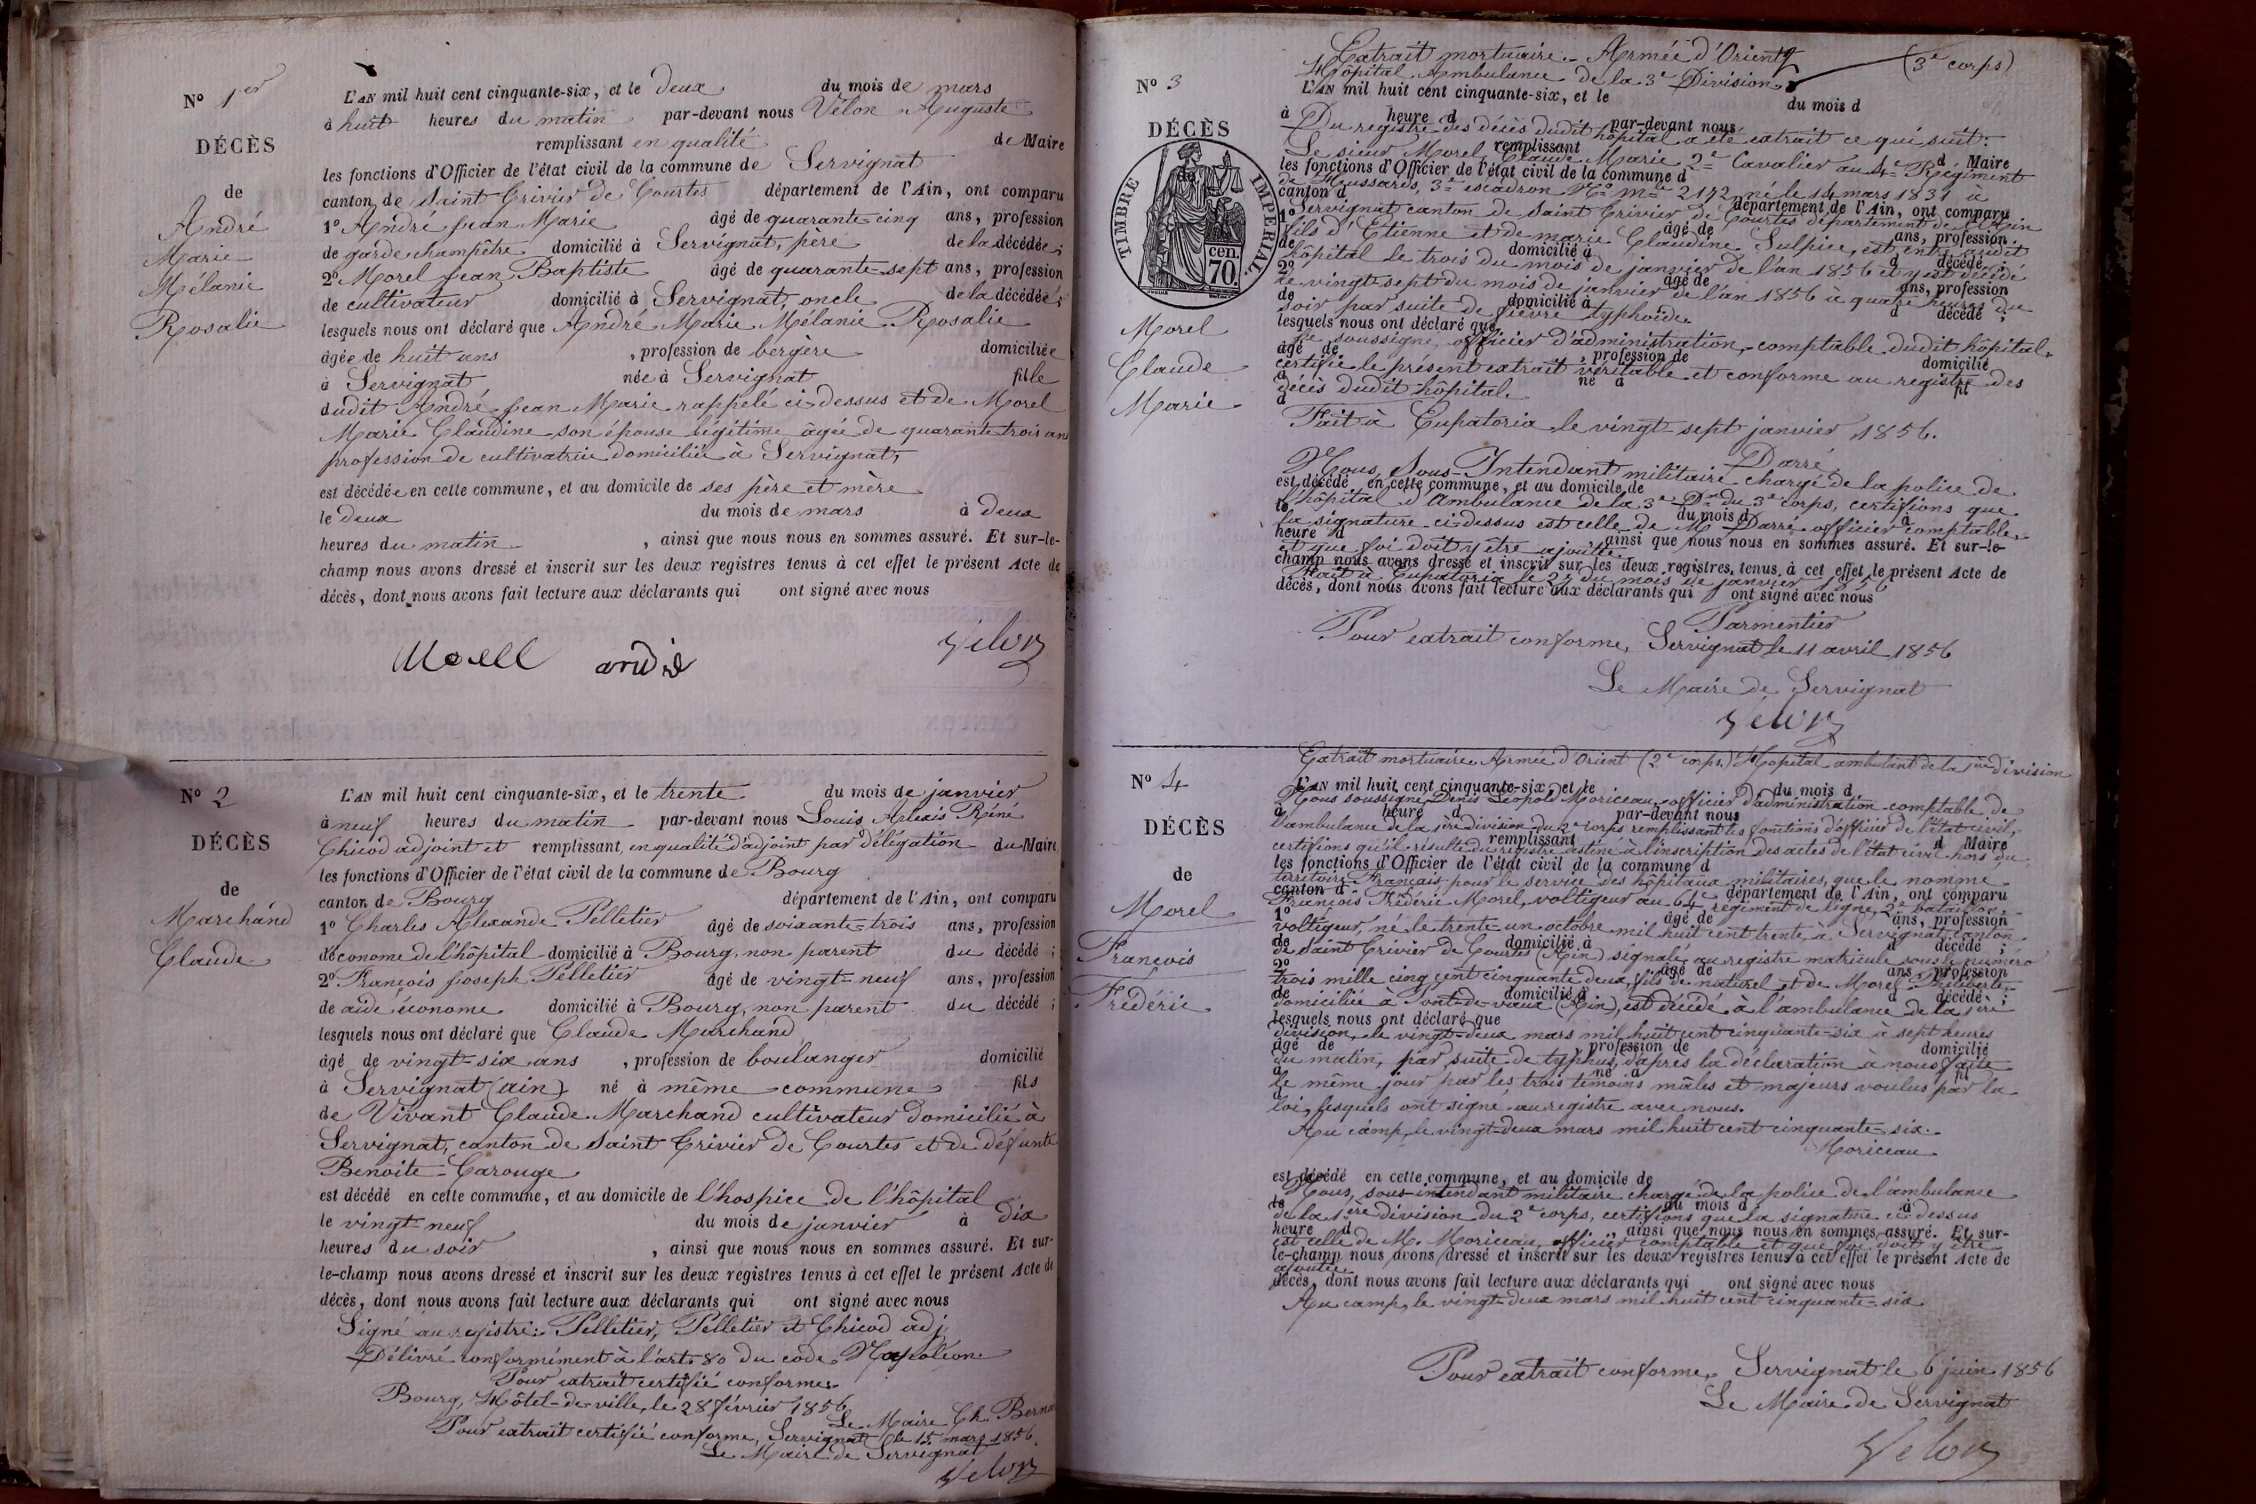 N° 1er
DÉCÈS
de
André
Marie
Mélanie
Rosalie
L'AN mil huit cent cinquante-six, et le deux du mois de mars
à huit heures du matin par-devant nous Vélon Auguste
remplissant en qualité de Maire
les fonctions d'Officier de l'état civil de la commune de Servignat
canton de Saint Trivier de Courtes département de l'Ain, ont comparu
1° André Jean Marie âgé de quarante-cinq ans, profession
de garde champêtre domicilié à Servignat, père de la décédée ;
2° Morel Jean Baptiste âgé de quarante-sept ans, profession
de cultivateur domicilié à Servignat, oncle de la décédée ;
lesquels nous ont déclaré que André Marie Mélanie Rosalie
âgée de huit ans , profession de bergère domiciliée
à Servignat née à Servignat fille
dudit André Jean Marie rappelé ci-dessus et de Morel
Marie Claudine son épouse légitime âgée de quarante trois ans
profession de cultivatrice domiciliée à Servignat,
est décédée en cette commune, et au domicile de ses père et mère
le deux du mois de mars à deux
heures du matin , ainsi que nous nous en sommes assuré. Et sur-le-
champ nous avons dressé et inscrit sur les deux registres tenus à cet effet le présent Acte de
décès, dont nous avons fait lecture aux déclarants qui ont signé avec nous
Morell andré Velon
N° 2
DÉCÈS
de
Marchand
Claude
L'AN mil huit cent cinquante-six, et le trente du mois de janvier
à neuf heures du matin par-devant nous Louis Alexis Réné
Chicod adjoint et remplissant en qualité d'adjoint par délégation du Maire
les fonctions d'Officier de l'état civil de la commune de Bourg
canton de Bourg département de l'Ain, ont comparu
1° Charles Alexande Pelletier âgé de soixante-trois ans, profession
d'économe de l'hôpital domicilié à Bourg, non parent du décédé ;
2° François Joseph Pelletier âgé de vingt-neuf ans, profession
de aide économe domicilié à Bourg, non parent du décédé ;
lesquels nous ont déclaré que Claude Marchand
âgé de vingt-six ans , profession de boulanger domicilié
à Servignat (ain) né à même commune fils
de Vivant Claude Marchand cultivateur domicilié à
Servignat, canton de Saint Trivier de Courtes et de défunte
Benoite Carouge
est décédé en cette commune, et au domicile de l'hospice de l'hôpital
le vingt-neuf du mois de janvier à dix
heures du soir , ainsi que nous nous en sommes assuré. Et sur-
le-champ nous avons dressé et inscrit sur les deux registres tenus à cet effet le présent Acte de
décès, dont nous avons fait lecture aux déclarants qui ont signé avec nous
Signé au registre: Pelletier, Pelletier et Chicod adj.
Délivré conformément à l'art. 80 du code Napoléon
Pour extrait certifié conforme
Bourg, Hôtel-de-ville, le 28 février 1856
Le Maire Ch. Berna
Pour extrait certifié conforme, Servignat le 15 mars 1856.
Le Maire de Servignat
Velon
Extrait mortuaire - Armée d'Orient (3e corps)
Hôpital Ambulance de la 3e Division
N° 3
DÉCÈS
TIMBRE IMPÉRIAL
70. cen.
Morel
Claude
Marie
L'AN mil huit cent cinquante-six, et le du mois d
à heure d par-devant nous
Du registre des décès dudit hôpital a été extrait ce qui suit:
remplissant d Maire
Le sieur Morel, Claude Marie 2e Cavalier au 4e Régiment
les fonctions d'Officier de l'état civil de la commune d
de Hussards, 3e escadron No Mle 2172, né le 14 mars 1831 à
canton d département de l'Ain, ont comparu
Servignat canton de Saint Trivier de Courtes département de l'Ain
1° âgé de ans, profession
fils d'Etienne et de marie Claudine Sulpice, est entré audit
de domicilié à d décédé ;
hôpital le trois du mois de janvier de l'an 1856 et y est décédé
2° âgé de ans, profession
le vingt-sept du mois de janvier de l'an 1856 à quatre heures du
de domicilié à d décédé ;
soir par suite de fièvre typhoïde
lesquels nous ont déclaré que
Je soussigné, officier d'administration, comptable dudit hôpital
âgé de , profession de domicilié
certifie le présent extrait véritable et conforme au registre des
à né à fil
décès dudit hôpital.
d
Fait à Eupatoria le vingt-sept janvier 1856.
Darré
Nous, Sous-Intendant militaire chargé de la police de
est décédé en cette commune, et au domicile de
l'hôpital d'Ambulance de la 3e Don du 3e corps, certifions que
le du mois d à
la signature ci-dessus est celle de Mr Darré officier comptable
heure d , ainsi que nous nous en sommes assuré. Et sur-le-
et que foi doit y être ajoutée
champ nous avons dressé et inscrit sur les deux registres, tenus à cet effet le présent Acte de
Fait à Eupatoria le 27 du mois de janvier 1856
décès, dont nous avons fait lecture aux déclarants qui ont signé avec nous
Parmentier
Pour extrait conforme, Servignat le 11 avril 1856
Le Maire de Servignat
Velon
Extrait mortuaire Armée d'Orient (2e corps) Hopital ambulant de la 1ère division
N° 4
DÉCÈS
de
Morel
François
Frédéric
L'AN mil huit cent cinquante-six et le du mois d
Nous soussigné, Denis Léopold Moriceau, officier d'administration comptable de
à heure d par-devant nous
l'ambulance de la 1ère division du 2e corps remplissant les fonctions d'officier de l'état civil,
remplissant d Maire
certifions qu'il résulte du registre destiné à l'inscription des actes de l'état civil hors du
les fonctions d'Officier de l'état civil de la commune d
territoire Français pour le service des hôpitaux militaires, que le nommé
canton d département de l'Ain, ont comparu
François Frédéric Morel, voltigeur au 64e régiment de ligne, 2e bataillon,
1° âgé de ans, profession
voltigeur, né le trente-un octobre mil huit cent trente, à Servignat, canton
de domicilié à d décédé ;
de Saint Trivier de Courtes (Ain) signalé au registre matricule sous le numéro
2° âgé de ans, profession
trois mille cinq cent cinquante deux, fils de naturel et de Morel Philiberte
de domicilié à d décédé ;
domiciliée à Pont-de-vaux (Ain), est décédé à l'ambulance de la 1ère
lesquels nous ont déclaré que
division, le vingt-deux mars mil huit cent cinquante-six à sept heures
âgé de , profession de domicilié
du matin, par suite de typhus, d'après la déclaration à nous faite
à né à fil
le même jour par les trois témoins mâles et majeurs voulus par la
d
loi, lesquels ont signé au registre avec nous.
Au camp, le vingt-deux mars mil huit cent cinquante-six.
Moriceau
est décédé en cette commune, et au domicile de
Nous, sous-intendant militaire chargé de la police de l'ambulance
le du mois d à
de la 1ère division du 2e corps, certifions que la signature ci-dessus
heure d , ainsi que nous nous en sommes assuré. Et sur-
est celle de M. Moriceau, officier comptable et que foi doit y être
le-champ nous avons dressé et inscrit sur les deux registres tenus à cet effet le présent Acte de
ajoutée
décès, dont nous avons fait lecture aux déclarants qui ont signé avec nous
Au camp, le vingt-deux mars mil huit cent cinquante-six
Pour extrait conforme, Servignat le 6 juin 1856
Le Maire de Servignat
Velon